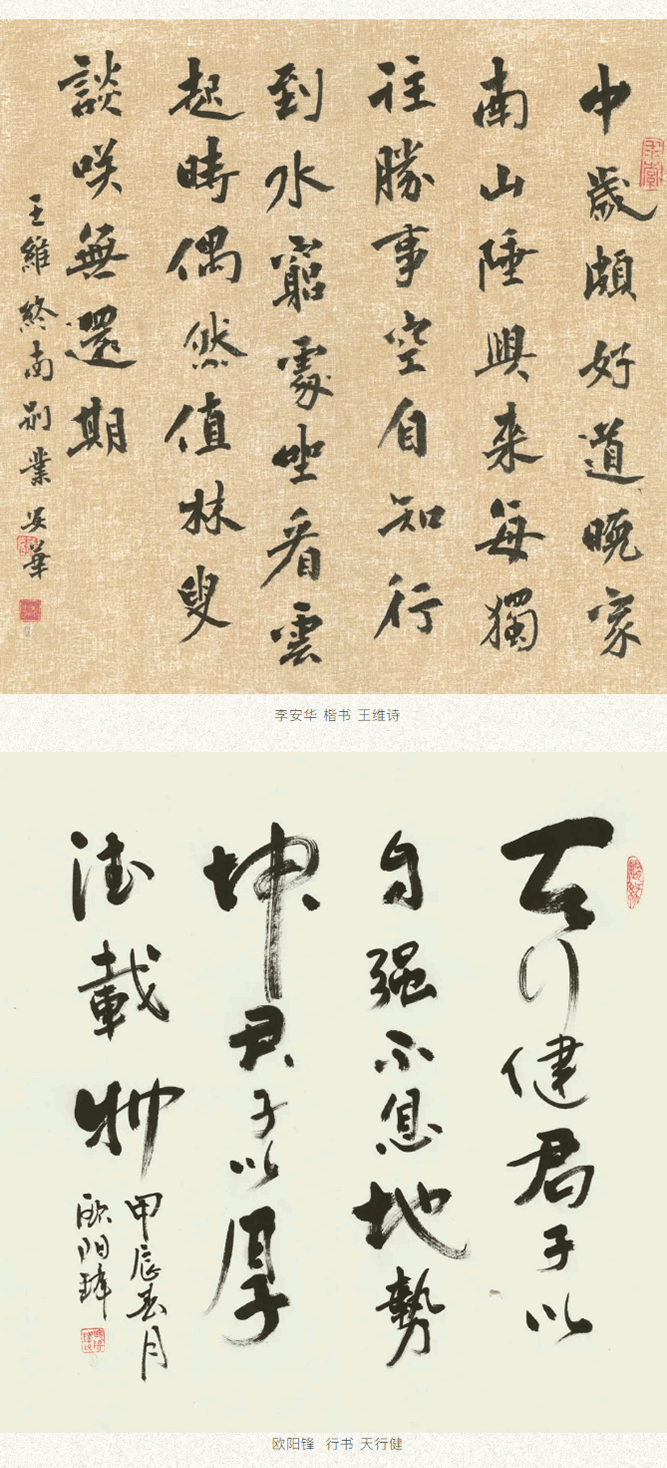 中歲頗好道晚家
南山陲興來每獨
往勝事空自知行
到水窮處坐看雲
起時偶然值林叟
談咲無還期
王維終南別業安華
李安华 楷书 王维诗
天行健君子以
自强不息地勢
坤君子以厚
德載物
甲辰春月
欧阳锋
欧阳锋 行书 天行健